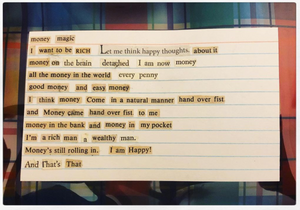 money magic
I want to be RICH Let me think happy thoughts. about it
money on the brain detached I am now money
all the money in the world every penny
good money and easy money
I think money Come in a natural manner hand over fist
and Money came hand over fist to me
money in the bank and money in my pocket
I'm a rich man a wealthy man.
Money's still rolling in. I am Happy!
And That's That